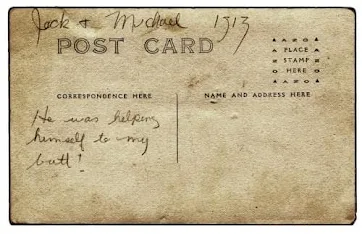 Jack + Michael 1913
POST CARD
AZO
PLACE
STAMP
HERE
AZO
CORRESPONDENCE HERE
NAME AND ADDRESS HERE
He was helping
himself to my
butt!